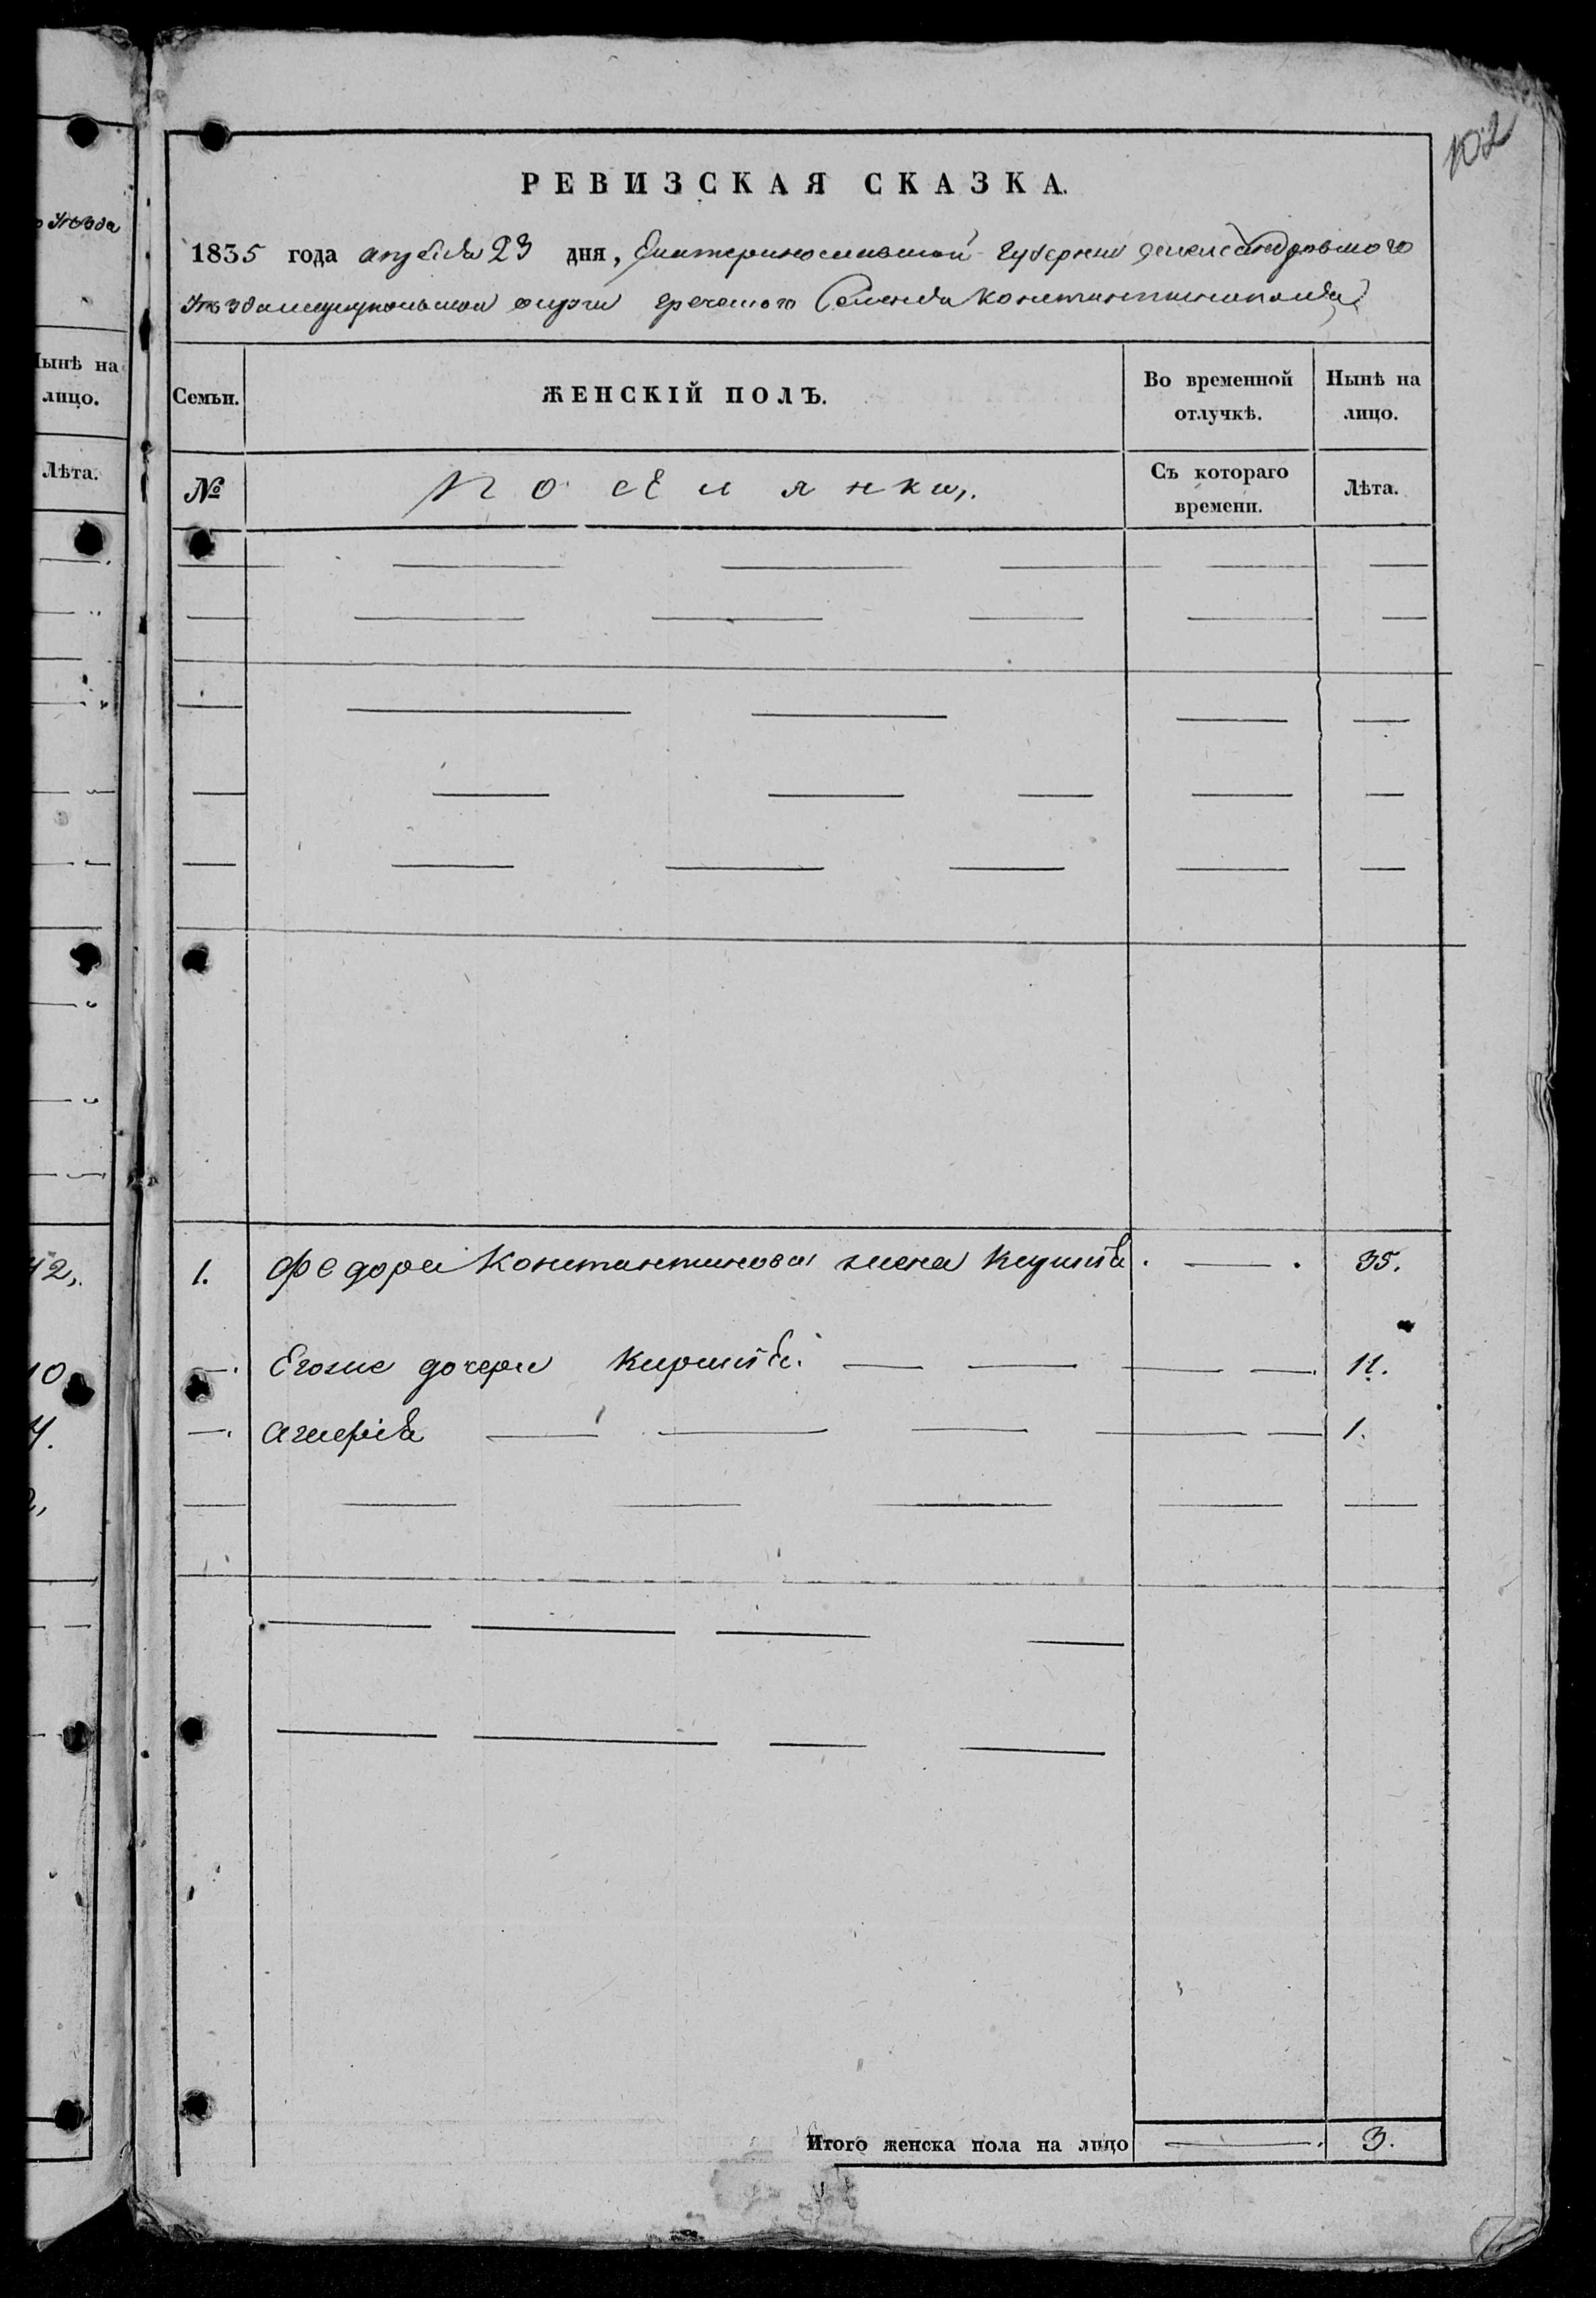 102
РЕВИЗСКАЯ СКАЗКА.
1835 года апреля 23 дня, Екатеринославской Губернии Александровского
Уѣзда Мариупольской округи греческого Селенія Константинополя
Семьи.
ЖЕНСКІЙ ПОЛЪ.
Во временной отлучкѣ.
Нынѣ на лицо.
№
Поселянки.
Съ котораго времени.
Лѣта.
1. Федора Константинова жена 35.
дочери 11.
1.
Итого женска пола на лицо 3.
Уѣзда
Нынѣ на
лицо.
Лѣта.